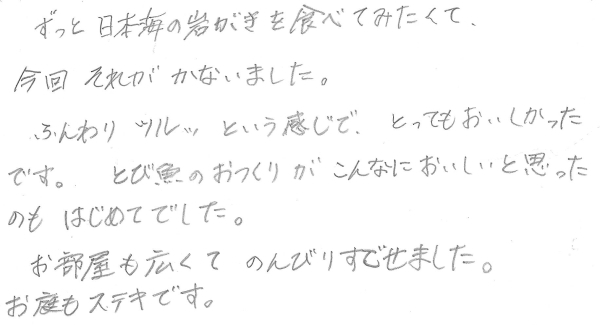 ずっと日本海の岩がきを食べてみたくて、
今回 それが かないました。
ふんわり ツルッ という感じで、とってもおいしかった
です。 とび魚のおつくりが こんなにおいしいと思った
のも はじめてでした。
お部屋も広くて のんびりすごせました。
お庭もステキです。